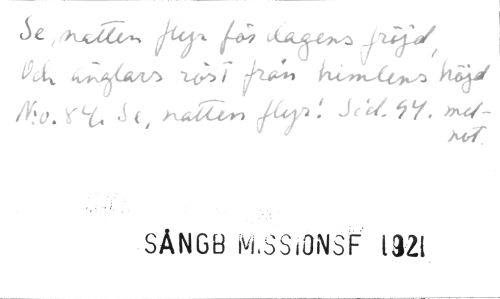 Se, natten flyr för dagens fröjd,
Och änglars röst från himlens höjd
N:o. 84. Se, natten flyr! Sid. 94. mel-
not.
SÅNGB MISSIONSF 1921